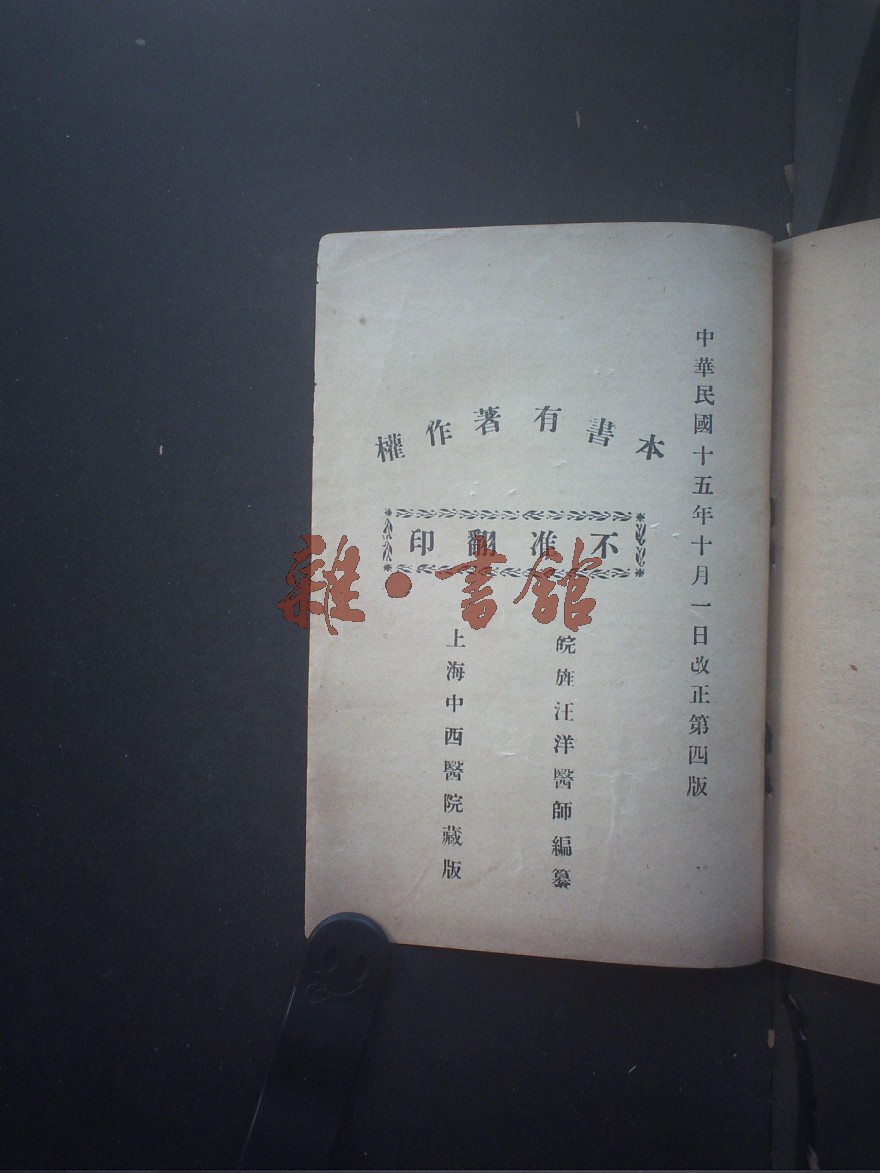 中華民國十五年十月一日改正第四版
本書有著作權
不准翻印
皖旌汪洋醫師編纂
上海中西醫院藏版
雜·書館